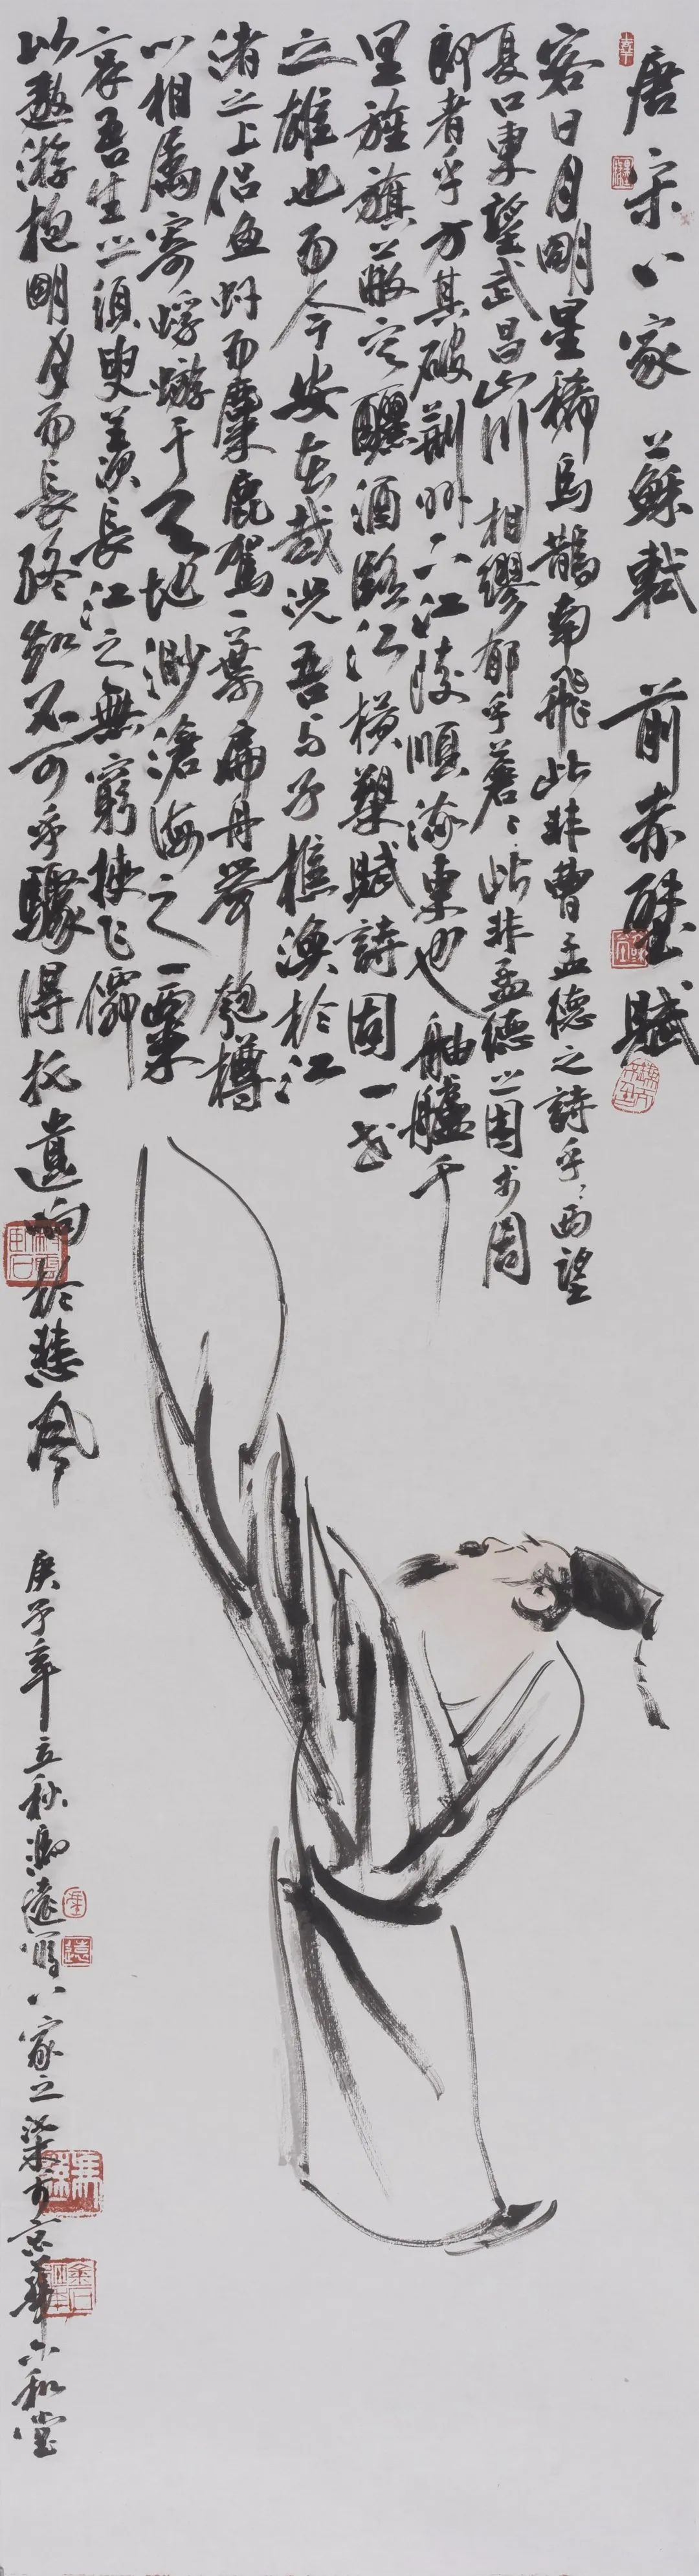 唐宋八家 蘇軾 前赤壁賦
客曰月明星稀烏鵲南飛此非曹孟德之詩乎西望
夏口東望武昌山川相繆郁乎蒼〻此非孟德之困於周
郎者乎方其破荆州下江陵順流東也舳艫千
里旌旗蔽空釃酒臨江橫槊賦詩固一世
之雄也而今安在哉況吾与子樵漁於江
渚之上侶魚虾而麋鹿駕一葉扁舟舉匏樽
以相屬寄蜉蝣于天地渺滄海之一粟
哀吾生之須臾羨長江之無窮挾飛僊
以遨游抱明月而長終知不可乎驟得托遺响於悲風
庚子年立秋馮遠寫八家之柒於京華和堂